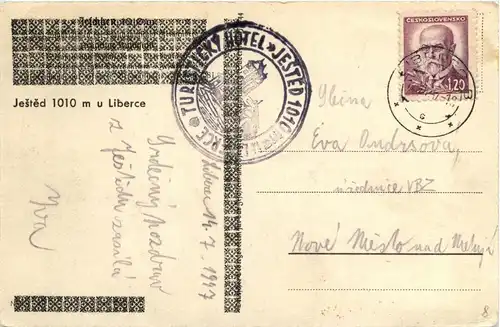 Ještěd 1010 m u Liberce
TURISTICKÝ HOTEL » JEŠTĚD 1010
ČESKOSLOVENSKO
1.20
Liberec 14. 7. 1947
Srdečný pozdrav
z Ještědu zasílá
Iva
Eva
úřednice
Nové Město nad Metují
8